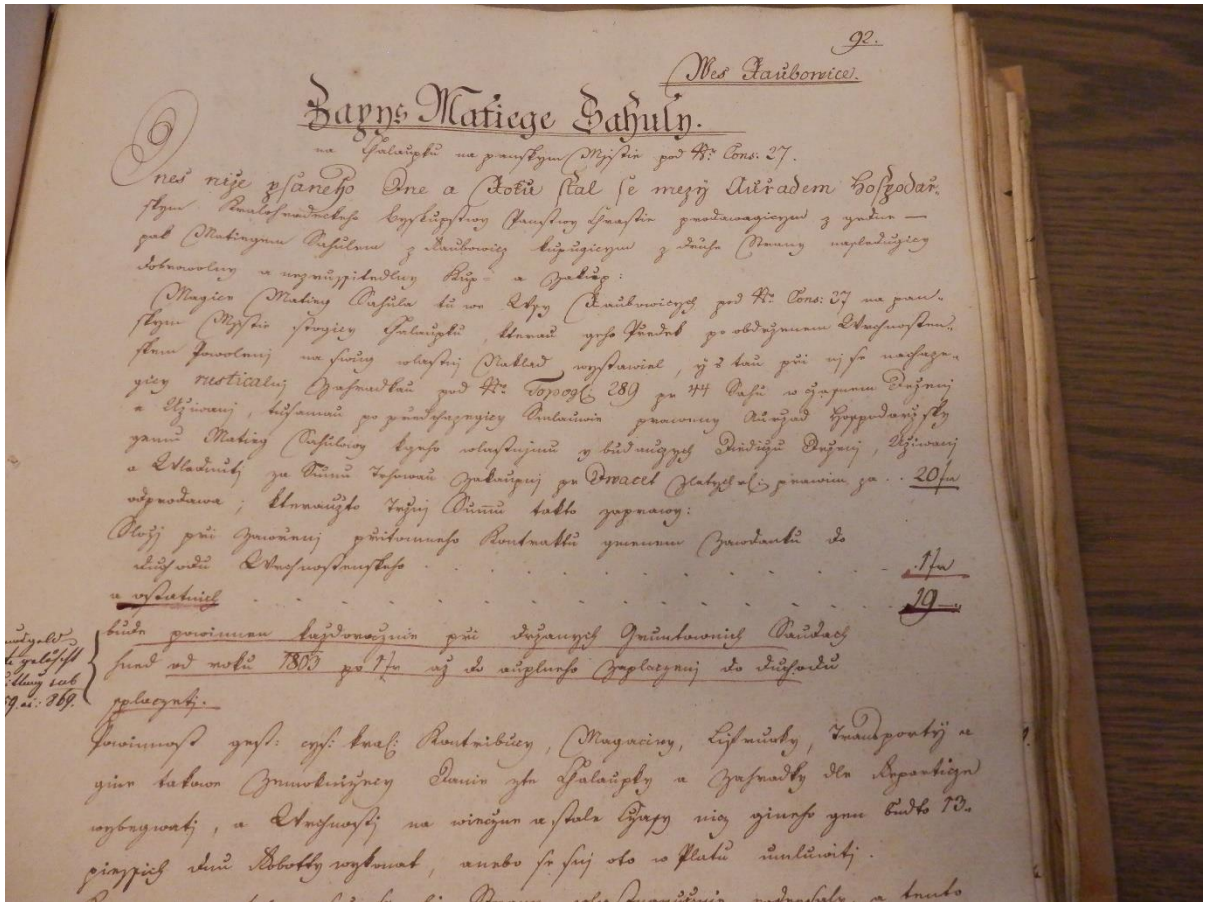 92.
Wes Raubowice.
Zapys Matiege Sahuly.
na Chalaupku na panskym Mjstie pod No. Cons: 27.
Dnes niže psaneho Dne a Roku stal se mezy Auřadem Hospodař-
skym Kralohradeckeho Byskupstwy Panstwy Chrastie prodawagicym z gedne —
pak Matiegem Sahulem z Raubowicz kupugicym z druhe Strany nasledugicy
dobrowolny a nezrussitedlny Kup- a Zakup:
Magice Matieg Sahula tu we Wsy Raubowicych pod No. Cons: 27 na pan-
skym Mjstie stogicy Chalaupku, kterau geho Předek po obdrženem Wrchnosten-
skem Powolenj na swug wlastnj Naklad wystawiel, y s tau při nj se nachaze-
gicy rusticalnj Zahradkau pod No. Topogr: 289 pr 44 Sahu w Drženj
a Užiwanj, Auržad Hospodaržsky
gemu Matieg Sahulowy k geho wlastnjmu y budaucych Diedicu Drženj, Užiwanj
a Wladnutj za Sumu Trhowau Zakupnj pr Dwacet Zlatych prawim za .. 20 fr
odprodawa, kterauzto Tržnj Sumu takto zaprawy:
Složj při Zawřenj přitomneho Kontraktu gmenem Zawdanku do
duchodu Wrchnostenskeho . . . . . . . . . 1 fr
a ostatnich . . . . . . . . . . . . 19 —
bude powinnen každorocznie při držanych Gruntownich Saudach
hned od roku 1803 po 1 fr až do auplneho Zaplaczenj do duchodu
splaczetj.
gelöscht
869.
Powinnost gest: cys: kral: Kontribucy, Magaciny, Lifrunky, Transporty a
gine takowe Danie z te Chalaupky a Zahradky dle Reparticze
wybegwatj, a Wrchnostj na wieczne a stale Czasy nicz gineho gen budto 13.
piessich dnu Robotty wykonat, anebo se snj oto w Platu umluwitj.
a tento